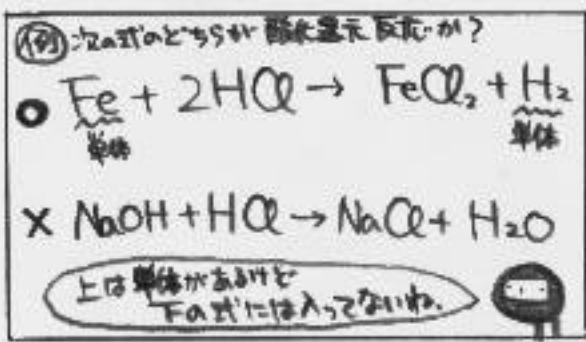 例 次の式のどちらが 酸化還元 反応か?
○ Fe + 2HCl → FeCl₂ + H₂
単体 単体
× NaOH + HCl → NaCl + H₂O
上は単体があるけど
下の式には入ってないね。